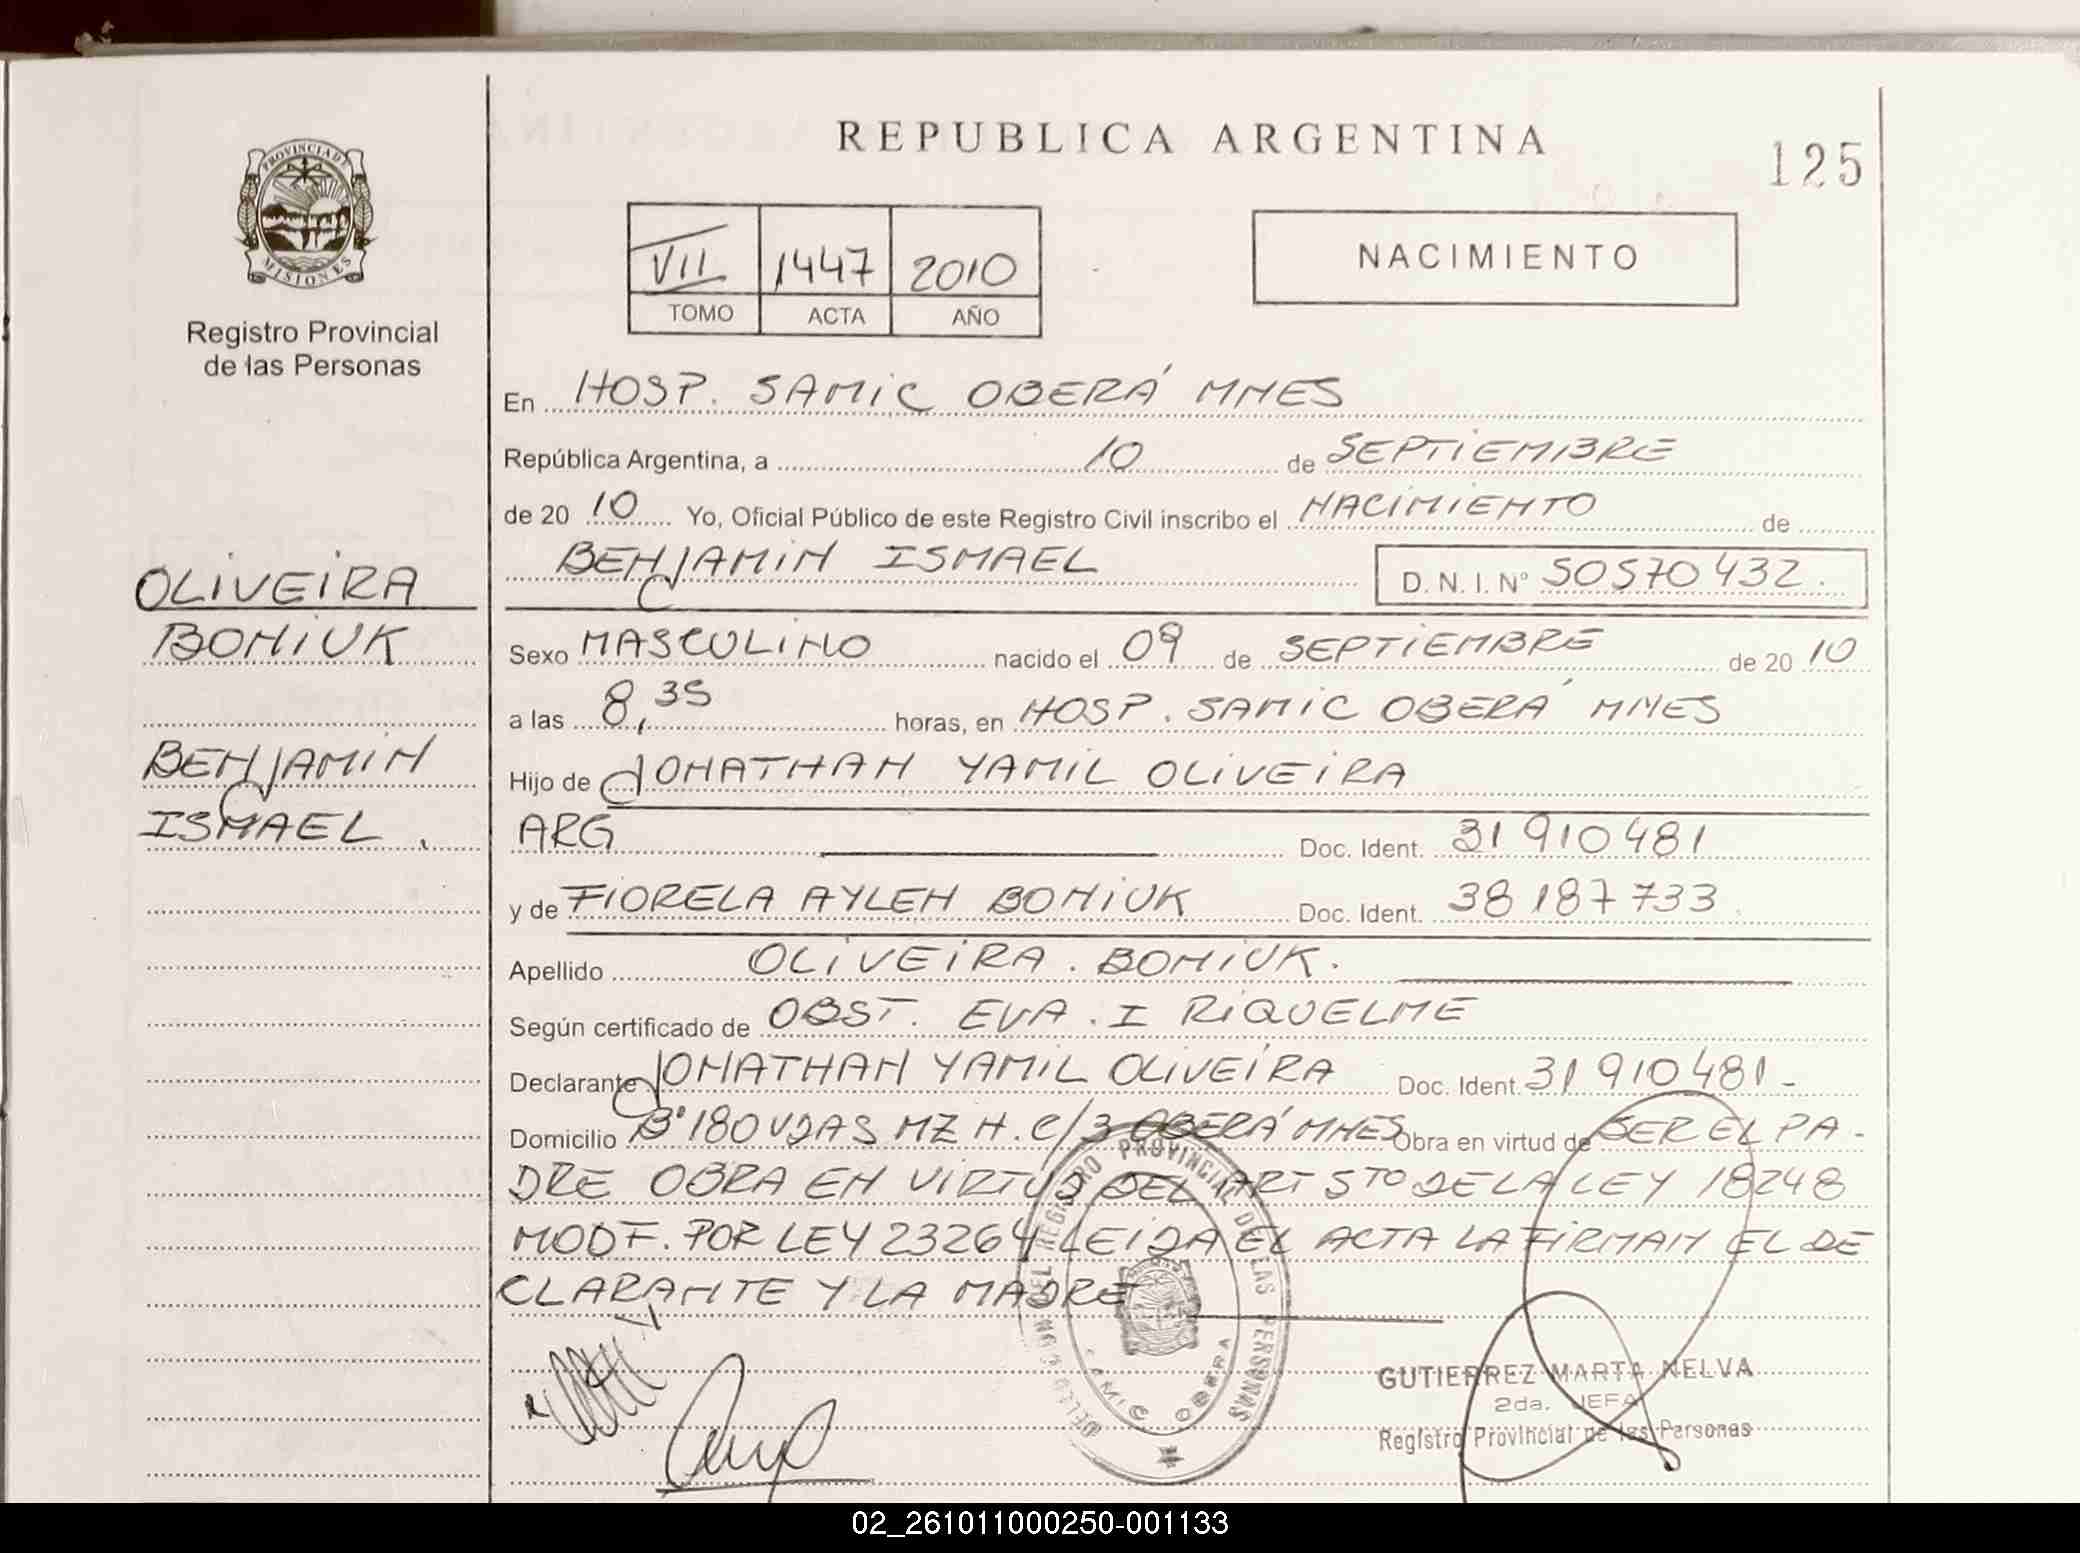 REPUBLICA ARGENTINA
125
PROVINCIA DE
MISIONES
Registro Provincial
de las Personas
VII 1447 2010
TOMO ACTA AÑO
NACIMIENTO
En HOSP. SAMIC OBERÁ MNES
República Argentina, a 10 de SEPTIEMBRE
de 20 10 Yo, Oficial Público de este Registro Civil inscribo el NACIMIENTO de
BENJAMIN ISMAEL D. N. I. Nº 50570432.
OLIVEIRA
BONIUK
BENJAMIN
ISMAEL.
Sexo MASCULINO nacido el 09 de SEPTIEMBRE de 20 10
a las 8,35 horas, en HOSP. SAMIC OBERÁ MNES
Hijo de JONATHAN YAMIL OLIVEIRA
ARG Doc. Ident. 31910481
y de FIORELA AYLEN BONIUK Doc. Ident. 38187733
Apellido OLIVEIRA. BONIUK.
Según certificado de OBST. EVA. I RIQUELME
Declarante JONATHAN YAMIL OLIVEIRA Doc. Ident. 31910481-
Domicilio Bº 180 VDAS MZ H. C/3 OBERÁ MNES Obra en virtud de SER EL PA-
DRE OBRA EN VIRTUD DEL ART 5TO DE LA LEY 18248
MODF. POR LEY 23264 LEIDA EL ACTA LA FIRMAN EL DE
CLARANTE Y LA MADRE
DEL REGISTRO PROVINCIAL DE LAS PERSONAS
SAMIC OBERA
GUTIERREZ MARTA NELVA
2da. JEFA
Registro Provincial de las Personas
02_261011000250-001133